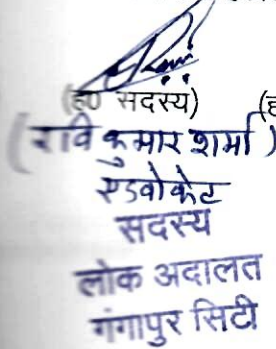 (ह0 सदस्य) (ह
(रवि कुमार शर्मा)
एडवोकेट
सदस्य
लोक अदालत
गंगापुर सिटी